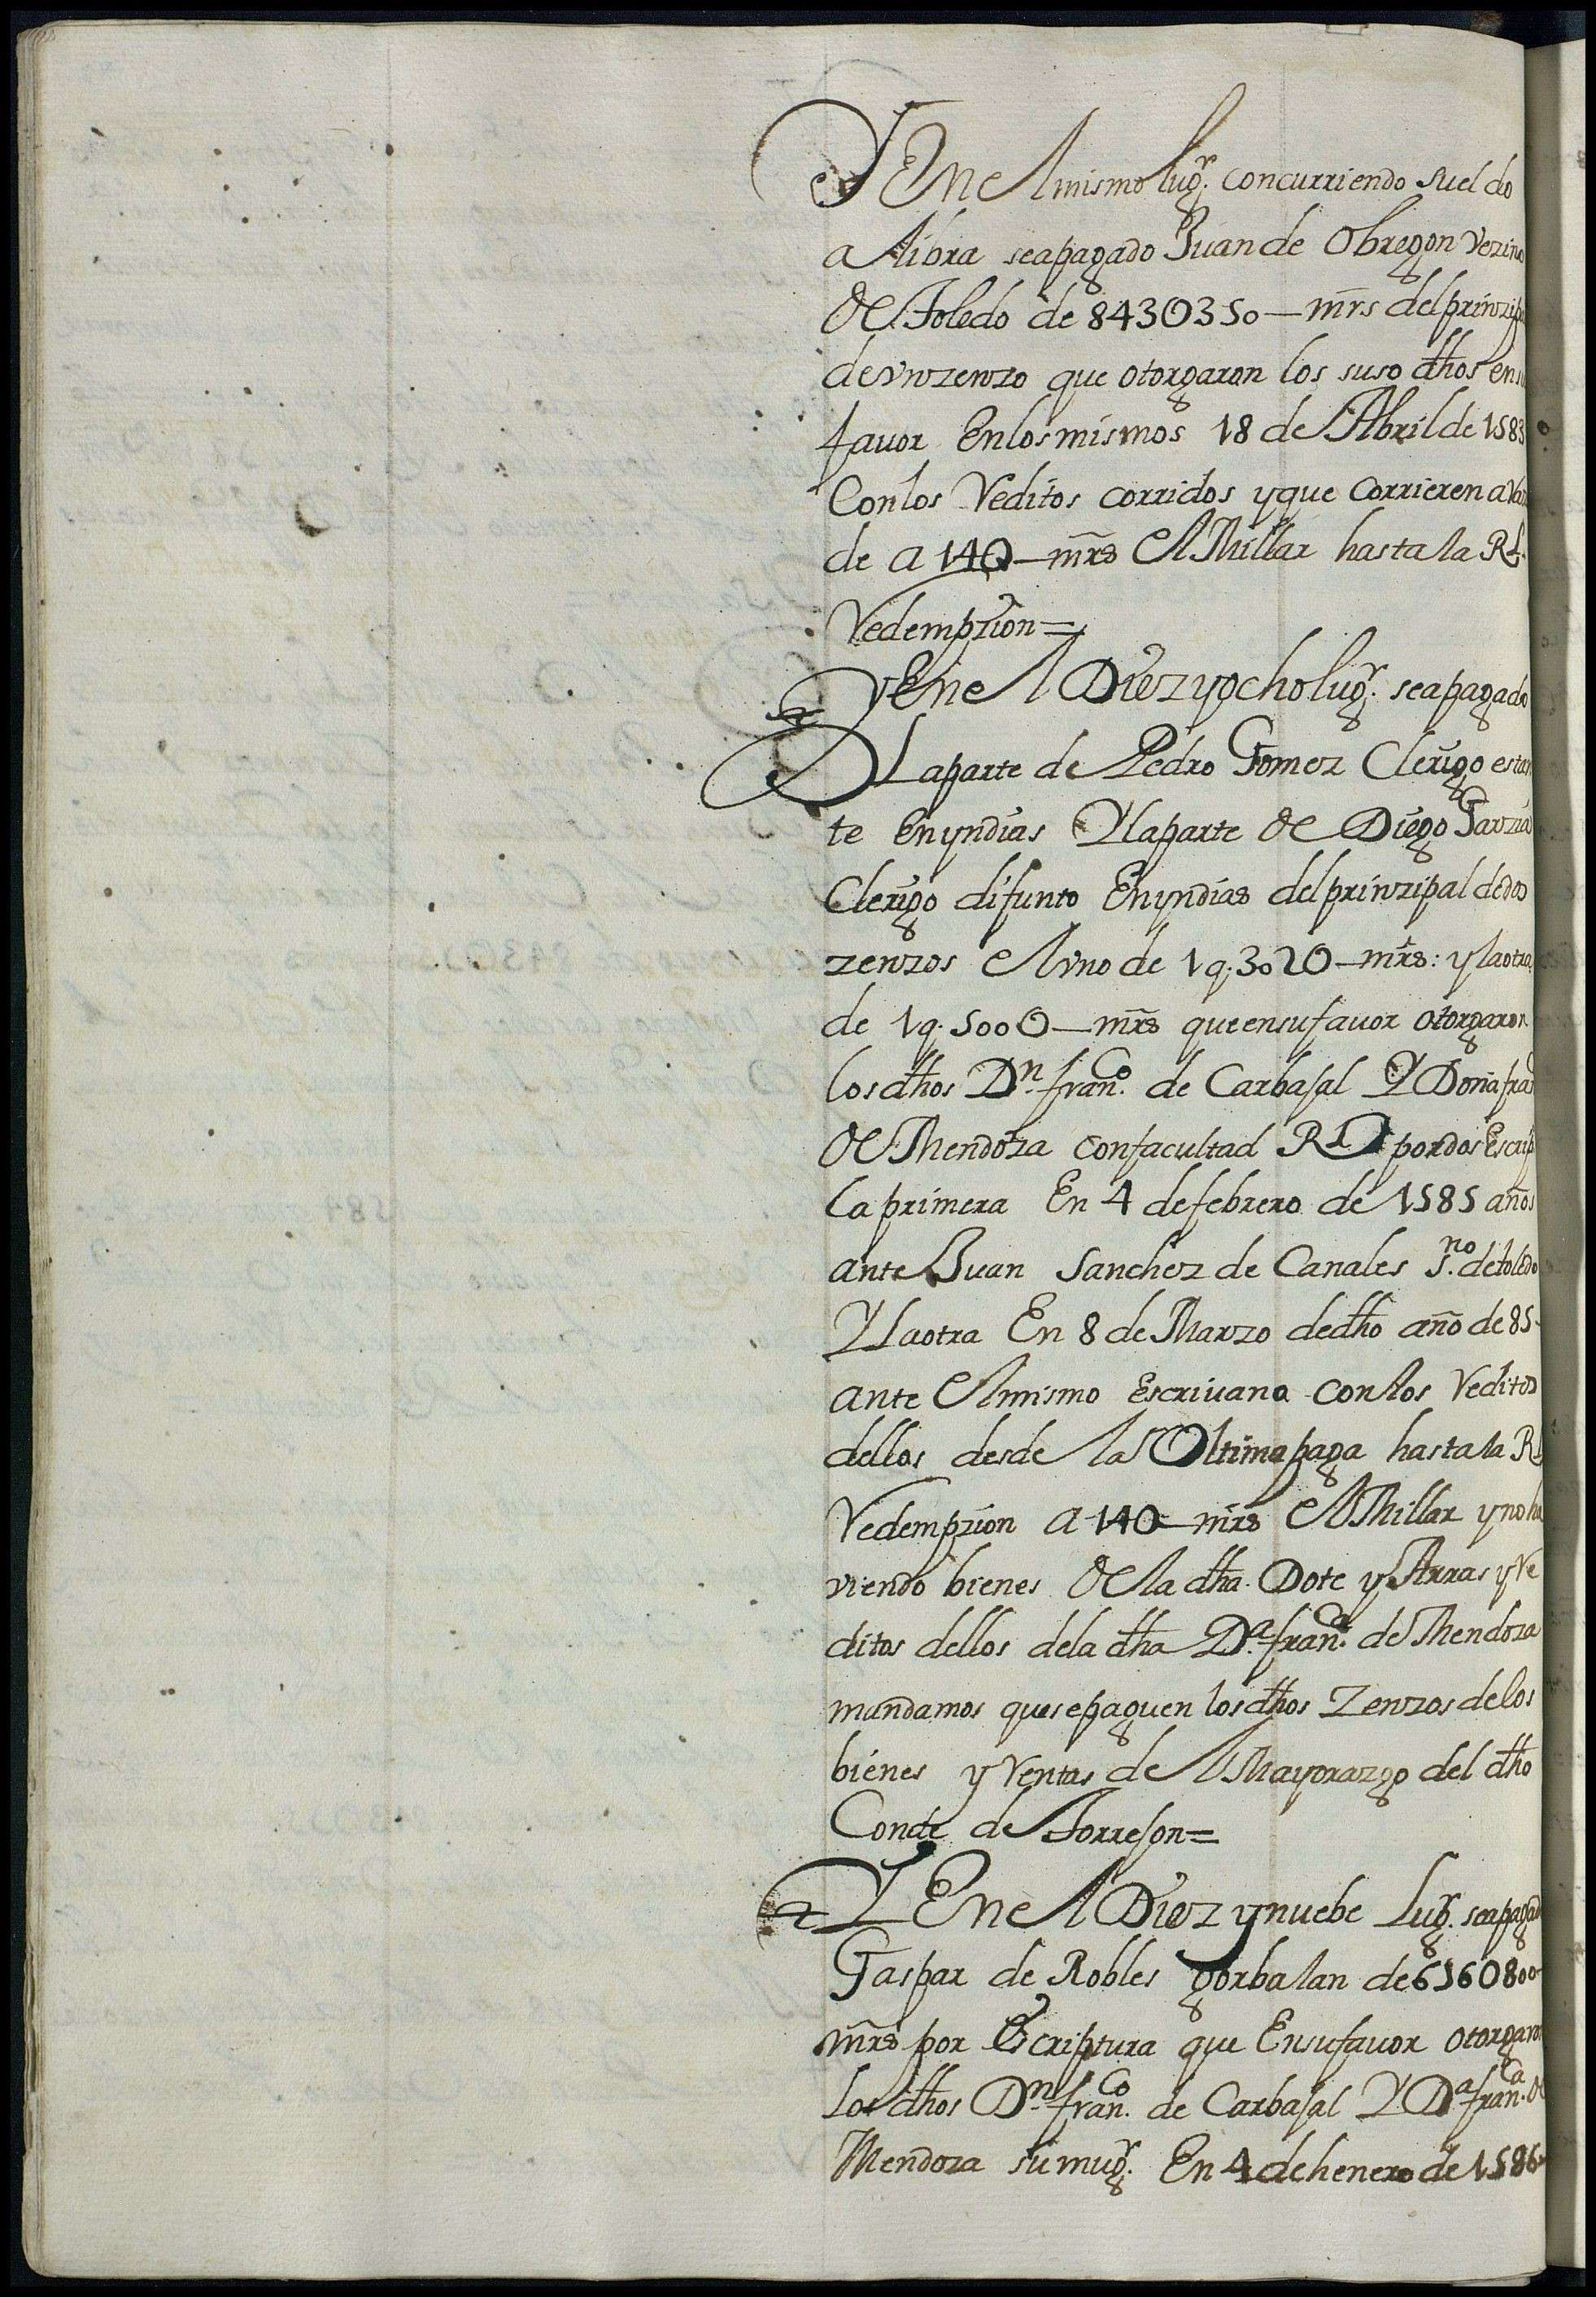 Y En el mismo lugr. concurriendo sueldo
a libra sea pagado Juan de Obregon Vezino
de Toledo de 8430350 — mrs del prinzip
de vn zenzo que otorgaron los suso dhos en su
favor En los mismos 18 de Abril de 1583
Con los Reditos corridos y que corrieren a
de a 140 — mrs el Millar hasta la Rl.
Redempzion =
Y En el Diez y ocho lugr. sea pagado
La parte de Pedro Gomez Clerigo estan
te En yndias Y la parte de Diego Garzia
Clerigo difunto En yndias del prinzipal de dos
zenzos el vno de 1q.3020 — mrs: y la otra
de 1q.5000 — mrs que en su favor otorgaron
los dhos Dn. franco. de Carbajal Y Doña fran
de Mendoza con facultad Rl por dos Escrip
la primera En 4 de febrero de 1585 años
ante Juan Sanchez de Canales s.no de toledo
Y La otra En 8 de Marzo de dho año de 85
ante el mismo Escrivano con los Reditos
dellos desde la Vltima paga hasta la Rl
Redempzion a 140 — mrs el Millar y no ha
viendo bienes de la dha. Dote y Arras y Re
ditos dellos de la dha Da. franca. de Mendoza
mandamos que se paguen los dhos Zenzos de los
bienes y Rentas del Mayorazgo del dho
Conde de Torrejon =
Y En el Diez y nuebe Lugr. sea pagado
Gaspar de Robles gorbalan de 6160800
mrs por Escriptura que En su favor otorgaron
Los dhos Dn. franco. de Carbajal Y Da franca. de
Mendoza su mugr. En 4 de henero de 1586